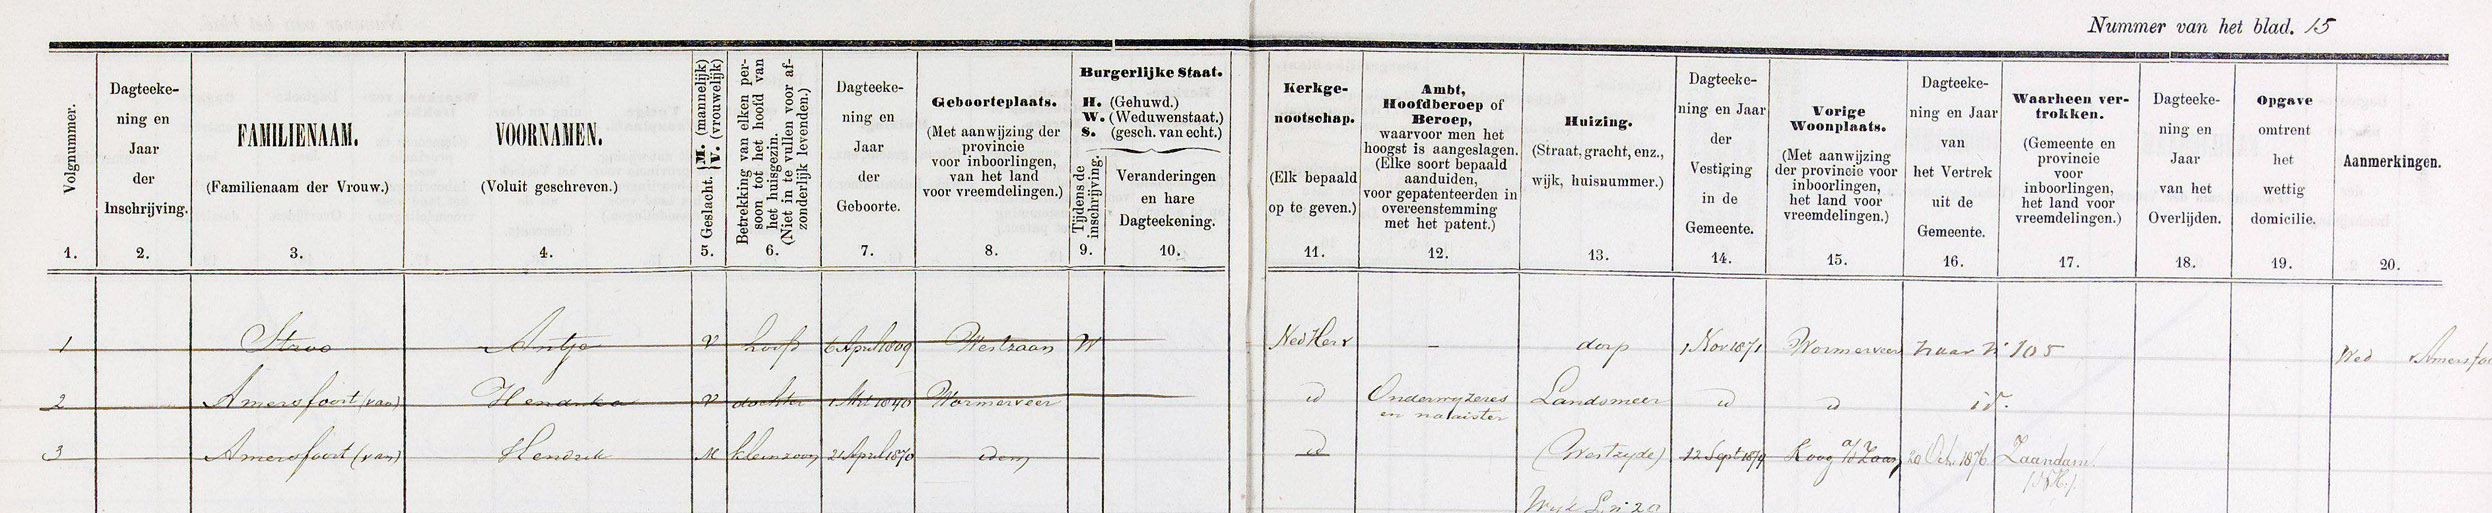 Nummer van het blad. 15
Volgnummer.
1.
Dagteeke-
ning en
Jaar
der
Inschrijving.
2.
FAMILIENAAM.
(Familienaam der Vrouw.)
3.
VOORNAMEN.
(Voluit geschreven.)
4.
Geslacht. { M. (mannelijk)
V. (vrouwelijk)
5.
Betrekking van elken per-
soon tot het hoofd van
het huisgezin.
(Niet in te vullen voor af-
zonderlijk levenden.)
6.
Dagteeke-
ning en
Jaar
der
Geboorte.
7.
Geboorteplaats.
(Met aanwijzing der
provincie
voor inboorlingen,
van het land
voor vreemdelingen.)
8.
Burgerlijke Staat.
H. (Gehuwd.)
W. (Weduwenstaat.)
S. (gesch. van echt.)
Tijdens de
inschrijving.
9.
Veranderingen
en hare
Dagteekening.
10.
Kerkge-
nootschap.
(Elk bepaald
op te geven.)
11.
Ambt,
Hoofdberoep of
Beroep,
waarvoor men het
hoogst is aangeslagen.
(Elke soort bepaald
aanduiden,
voor gepatenteerden in
overeenstemming
met het patent.)
12.
Huizing.
(Straat, gracht, enz.,
wijk, huisnummer.)
13.
Dagteeke-
ning en Jaar
der
Vestiging
in de
Gemeente.
14.
Vorige
Woonplaats.
(Met aanwijzing
der provincie voor
inboorlingen,
het land voor
vreemdelingen.)
15.
Dagteeke-
ning en Jaar
van
het Vertrek
uit de
Gemeente.
16.
Waarheen ver-
trokken.
(Gemeente en
provincie
voor
inboorlingen,
het land voor
vreemdelingen.)
17.
Dagteeke-
ning en
Jaar
van het
Overlijden.
18.
Opgave
omtrent
het
wettig
domicilie.
19.
Aanmerkingen.
20.
1 Stroo Antje V hoofd 6 April 1809 Westzaan W Ned Her - dorp 1 Nov 1871 Wormerveer naar n 105 Wed v Amersfoo
2 Amersfoort (van) Hendrika V dochter 1 1840 Wormerveer id Onderwijzeres Landsmeer id id id.
en naaister
3 Amersfoort (van) Hendrik M kleinzoon 21 April 1870 idem id (Westzyde) 12 Sept 1874 Koog a/d Zaan 20 Oct. 1876 Zaandam
(N.H.).
Wyk L n 20